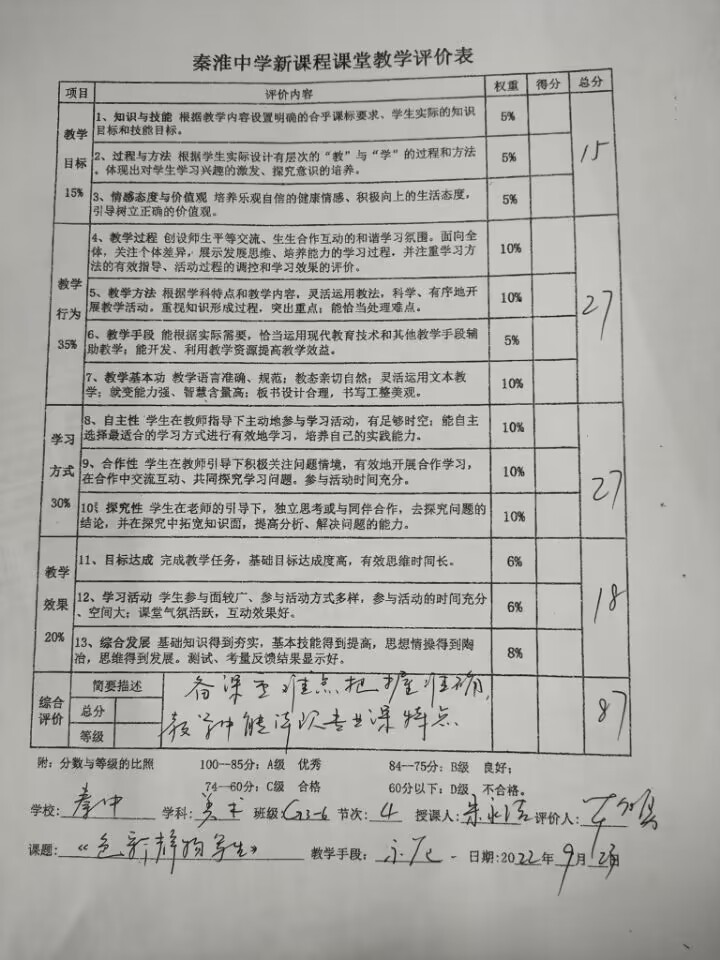 秦淮中学新课程课堂教学评价表
项目 评价内容 权重 得分 总分
教学目标 15%
1、知识与技能 根据教学内容设置明确的合乎课标要求、学生实际的知识
目标和技能目标。 5%
2、过程与方法 根据学生实际设计有层次的“教”与“学”的过程和方法
，体现出对学生学习兴趣的激发、探究意识的培养。 5%
3、情感态度与价值观 培养乐观自信的健康情感、积极向上的生活态度，
引导树立正确的价值观。 5%
15
教学行为 35%
4、教学过程 创设师生平等交流、生生合作互动的和谐学习氛围。面向全
体，关注个体差异，展示发展思维、培养能力的学习过程，并注重学习方
法的有效指导、活动过程的调控和学习效果的评价。 10%
5、教学方法 根据学科特点和教学内容，灵活运用教法，科学、有序地开
展教学活动，重视知识形成过程，突出重点；能恰当处理难点。 10%
6、教学手段 能根据实际需要，恰当运用现代教育技术和其他教学手段辅
助教学；能开发、利用教学资源提高教学效益。 5%
7、教学基本功 教学语言准确、规范；教态亲切自然；灵活运用文本教
学；就变能力强、智慧含量高；板书设计合理，书写工整美观。 10%
27
学习方式 30%
8、自主性 学生在教师指导下主动地参与学习活动，有足够时空；能自主
选择最适合的学习方式进行有效地学习，培养自己的实践能力。 10%
9、合作性 学生在教师引导下积极关注问题情境，有效地开展合作学习，
在合作中交流互动、共同探究学习问题。参与活动时间充分。 10%
10、探究性 学生在老师的引导下，独立思考或与同伴合作，去探究问题的
结论，并在探究中拓宽知识面，提高分析、解决问题的能力。 10%
27
教学效果 20%
11、目标达成 完成教学任务，基础目标达成度高，有效思维时间长。 6%
12、学习活动 学生参与面较广、参与活动方式多样，参与活动的时间充分
、空间大；课堂气氛活跃，互动效果好。 6%
13、综合发展 基础知识得到夯实，基本技能得到提高，思想情操得到陶
冶，思维得到发展。测试、考量反馈结果显示好。 8%
18
综合评价 简要描述 备课重难点把握准确，
总分 87
等级 教学中能体现专业课特点
附：分数与等级的比照 100--85分：A级 优秀 84--75分：B级 良好；
74--60分：C级 合格 60分以下：D级 不合格。
学校：秦中 学科：美术 班级：G3-6 节次：4 授课人：朱永洁 评价人：
课题：《色彩静物写生》 教学手段： 日期：2022年9月23日